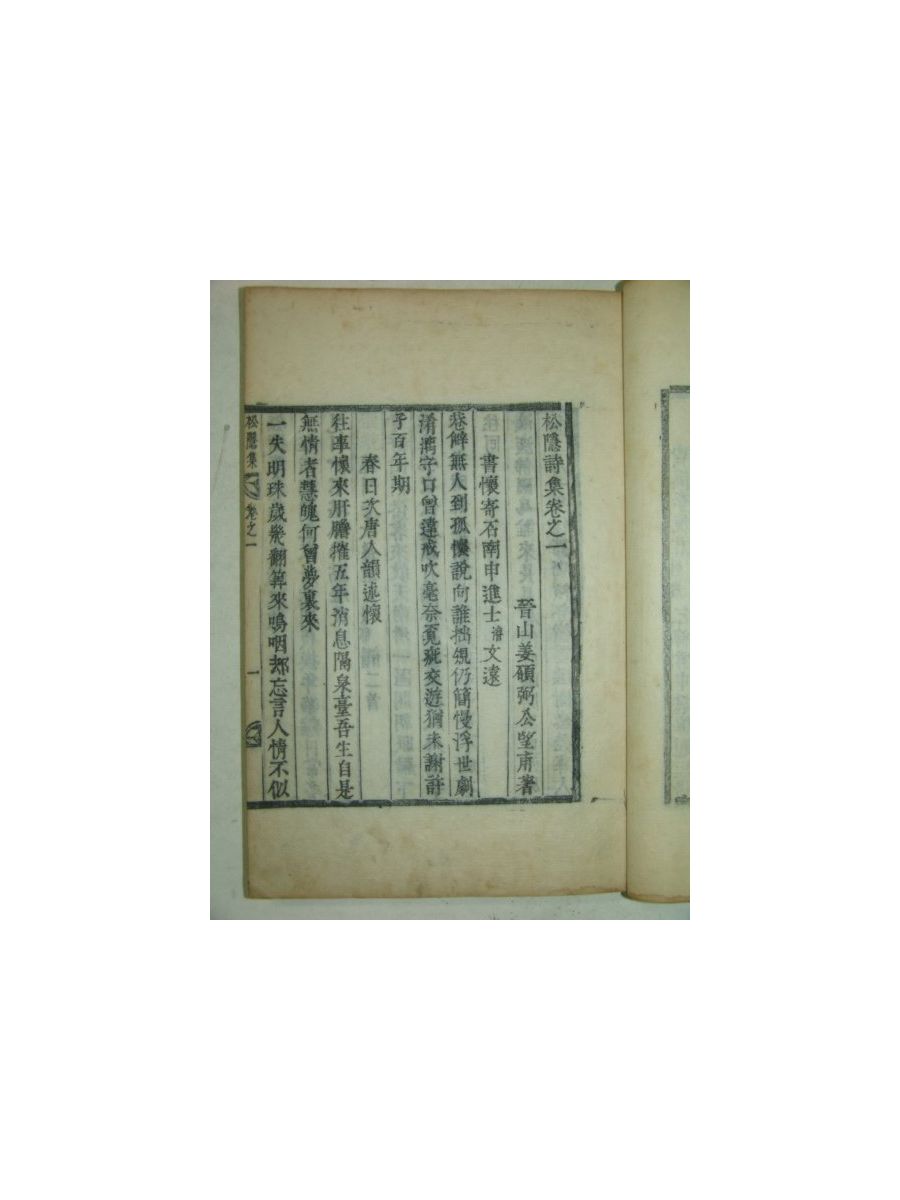 松隱詩集卷之一
晉山姜碩弼公望甫著
書懷寄石南申進士濟文遠
巷僻無人到孤懷說向誰拙規仍簡慢浮世劇
淆漓守口曾違戒吹毫奈覓疵交遊猶未謝許
子百年期
春日次唐人韻述懷
往事懷來肝膽摧五年消息隔泉臺吾生自是
無情者慧魄何曾夢裏來
一失明珠歲幾翻筭來嗚咽却忘言人情不似
松隱集 卷之一 一